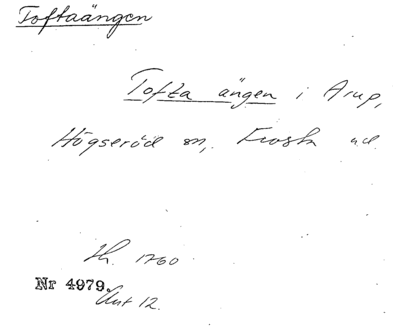 Toftaängen
Tofta ängen i Arup,
Högseröd sn, Frosta hd.
Lh. 1760
Nr 4979.
Ant 12.